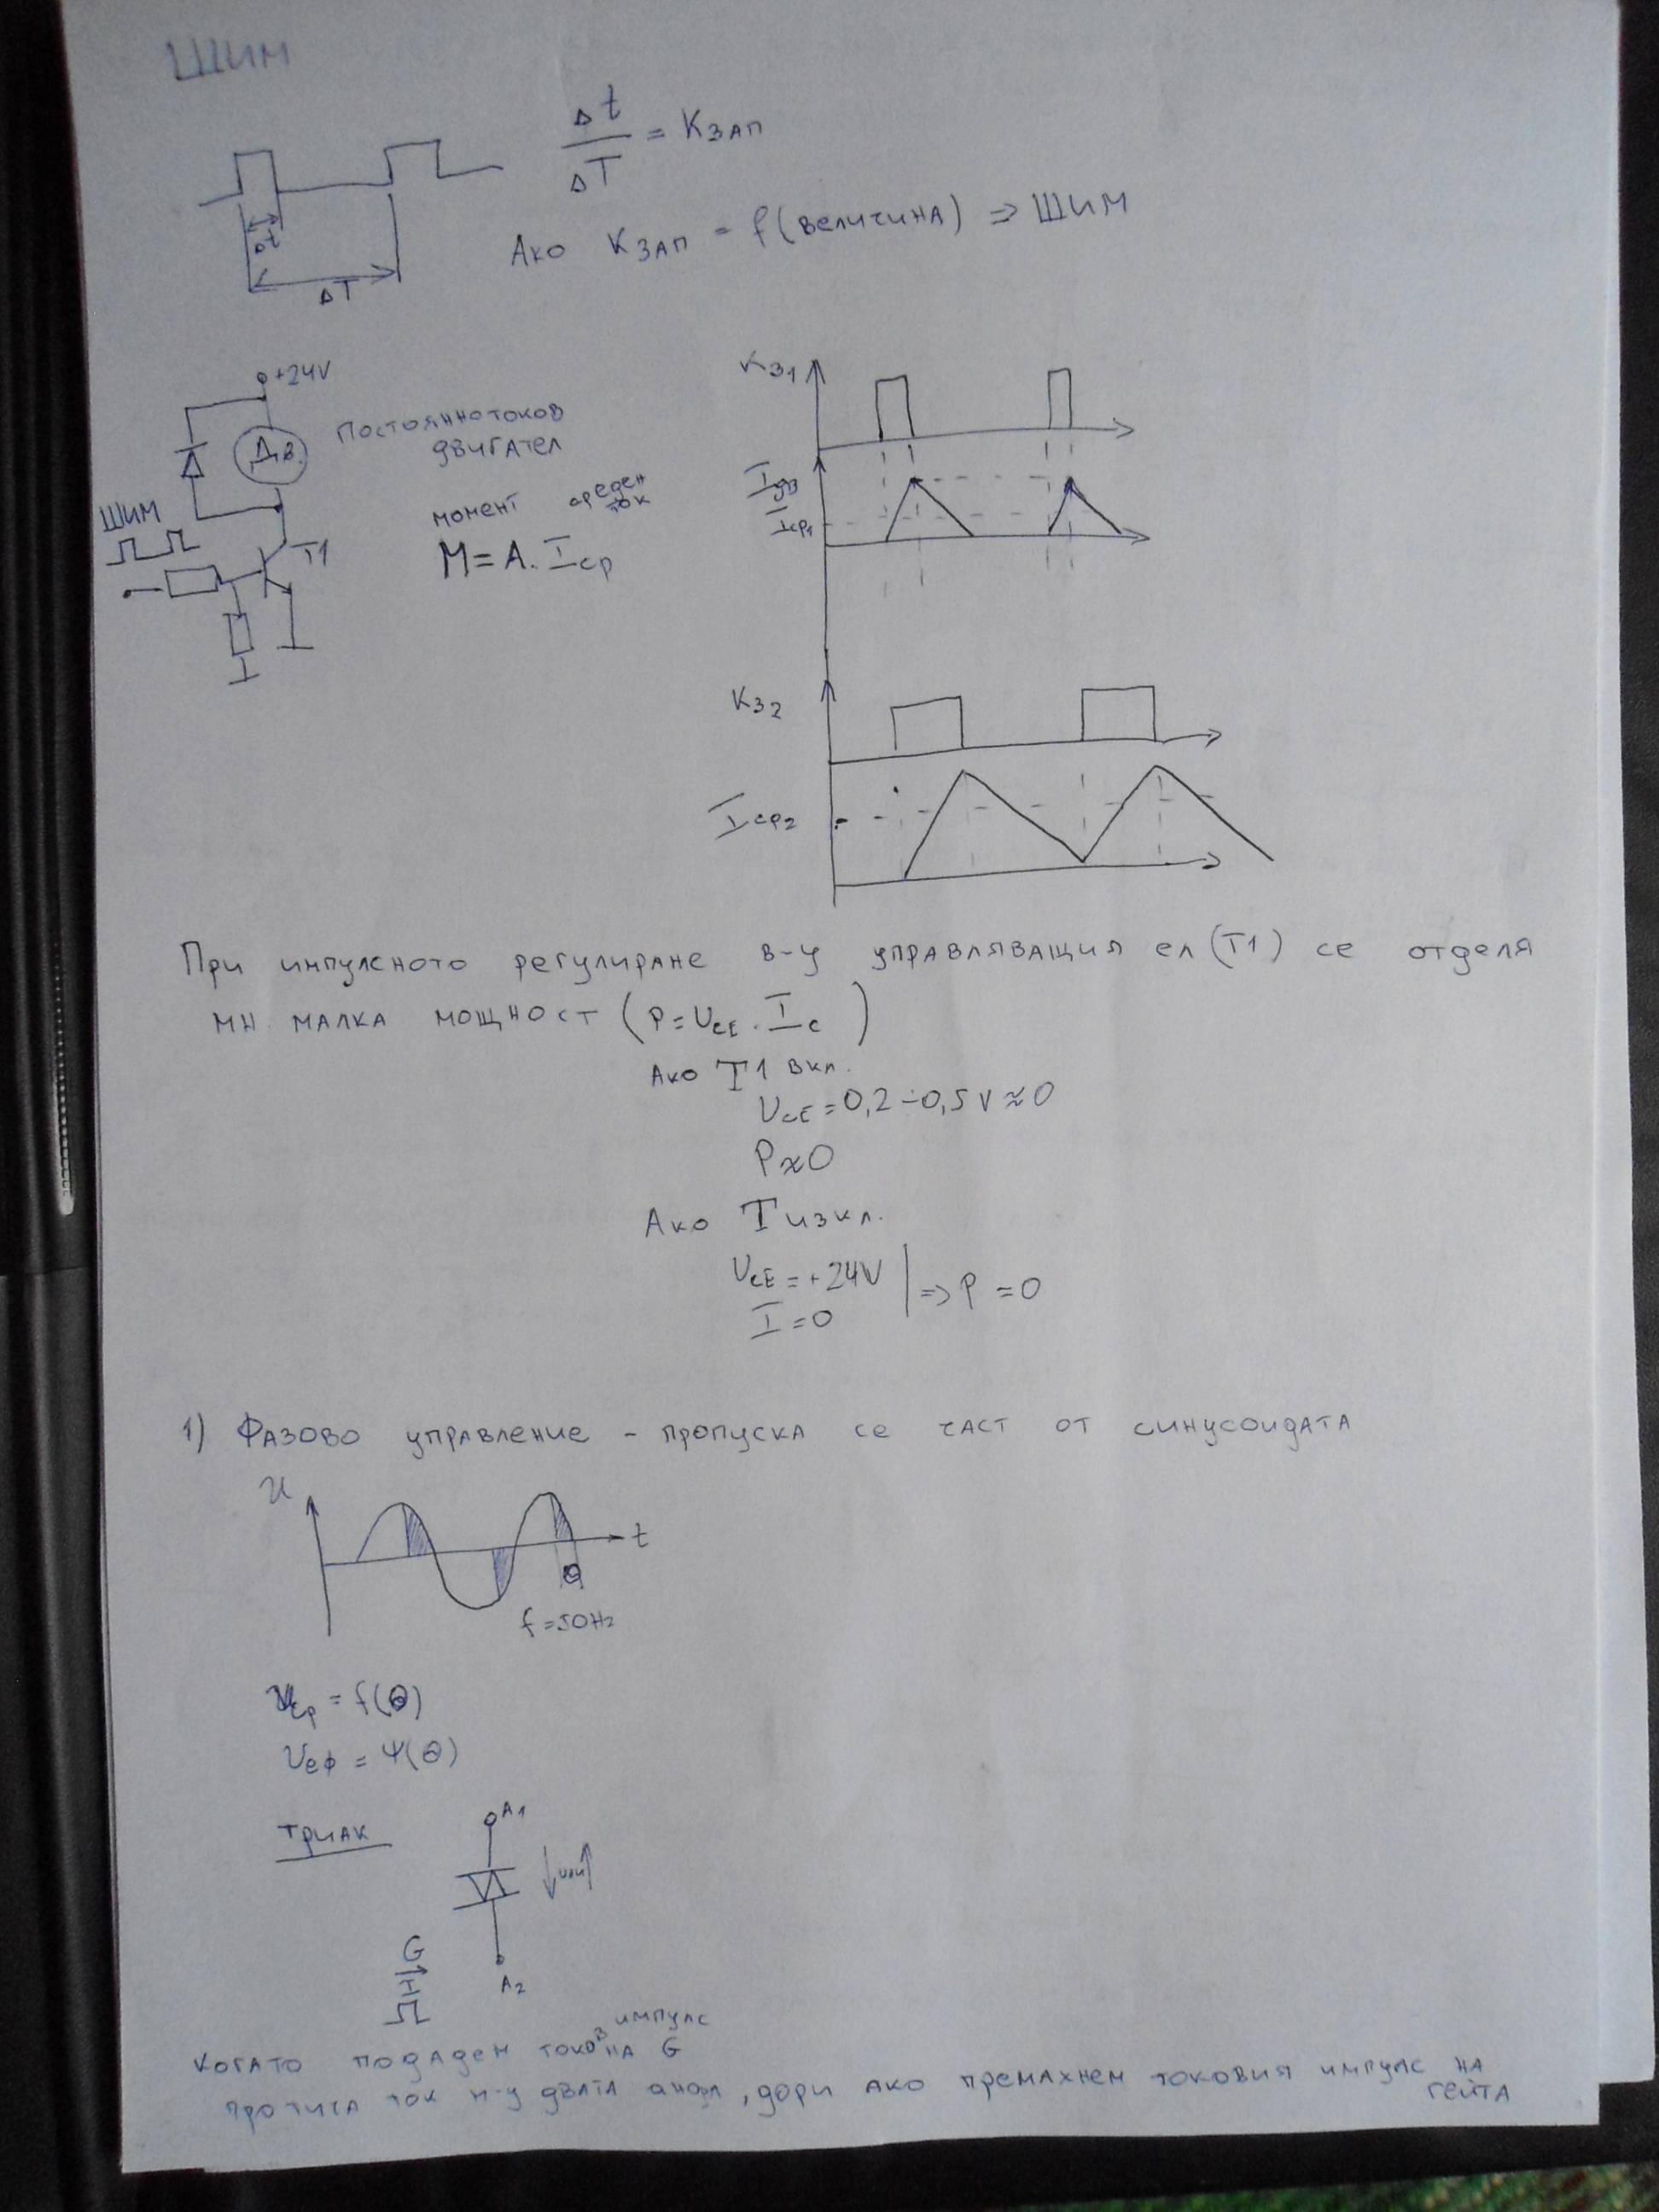 ШИМ
Δt
ΔT
= KЗАП
Δt
ΔT
Ако KЗАП = f(величина) => ШИМ
+24V
Дв.
Постояннотоков
двигател
ШИМ
T1
момент среден
ток
M = A. Iср
KЗ1
Iдв
Iср1
KЗ2
Iср2
При импулсното регулиране в-у управляващия ел(T1) се отделя
мн. малка мощност (P=UCE . IC)
Ако T1 вкл.
UCE = 0,2÷0,5V ≈ 0
P≈0
Ако T изкл.
UCE = +24V
I = 0
=> P = 0
1) Фазово управление - пропуска се част от синусоидата
U
t
Θ
f = 50Hz
Uср = f(Θ)
Uеф = Ψ(Θ)
Триак
A1
или
A2
G
Когато подадем токов импулс
на G
протича ток м-у двата анода, дори ако премахнем токовия импулс на
гейта